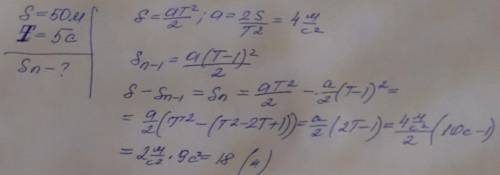 S=50м
T=5с
Sn-?
S=aT²/2; a=2S/T²=4 м/с²
Sn-1=a(T-1)²/2
S-Sn-1=Sn=aT²/2-a/2(T-1)²=
=a/2(T²-(T²-2T+1))=a/2(2T-1)=4м/с²/2(10с-1)
=2м/с²·9с²=18(м)